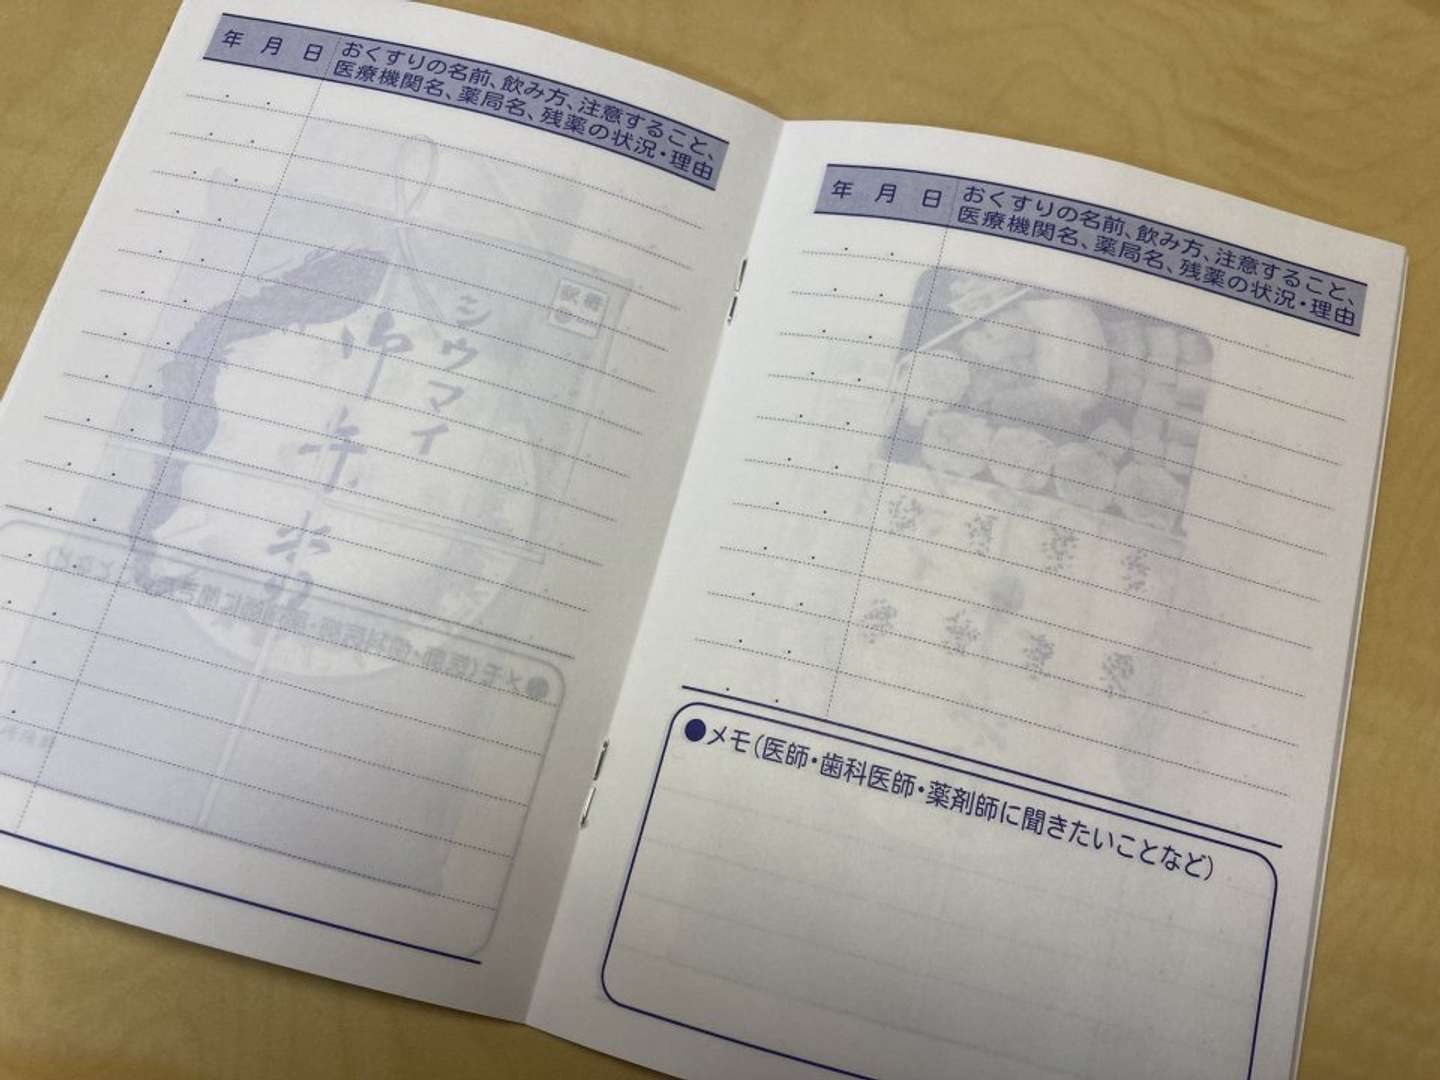 年 月 日
おくすりの名前、飲み方、注意すること、
医療機関名、薬局名、残薬の状況・理由
シウマイ
年 月 日
おくすりの名前、飲み方、注意すること、
医療機関名、薬局名、残薬の状況・理由
●メモ（医師・歯科医師・薬剤師に聞きたいことなど）